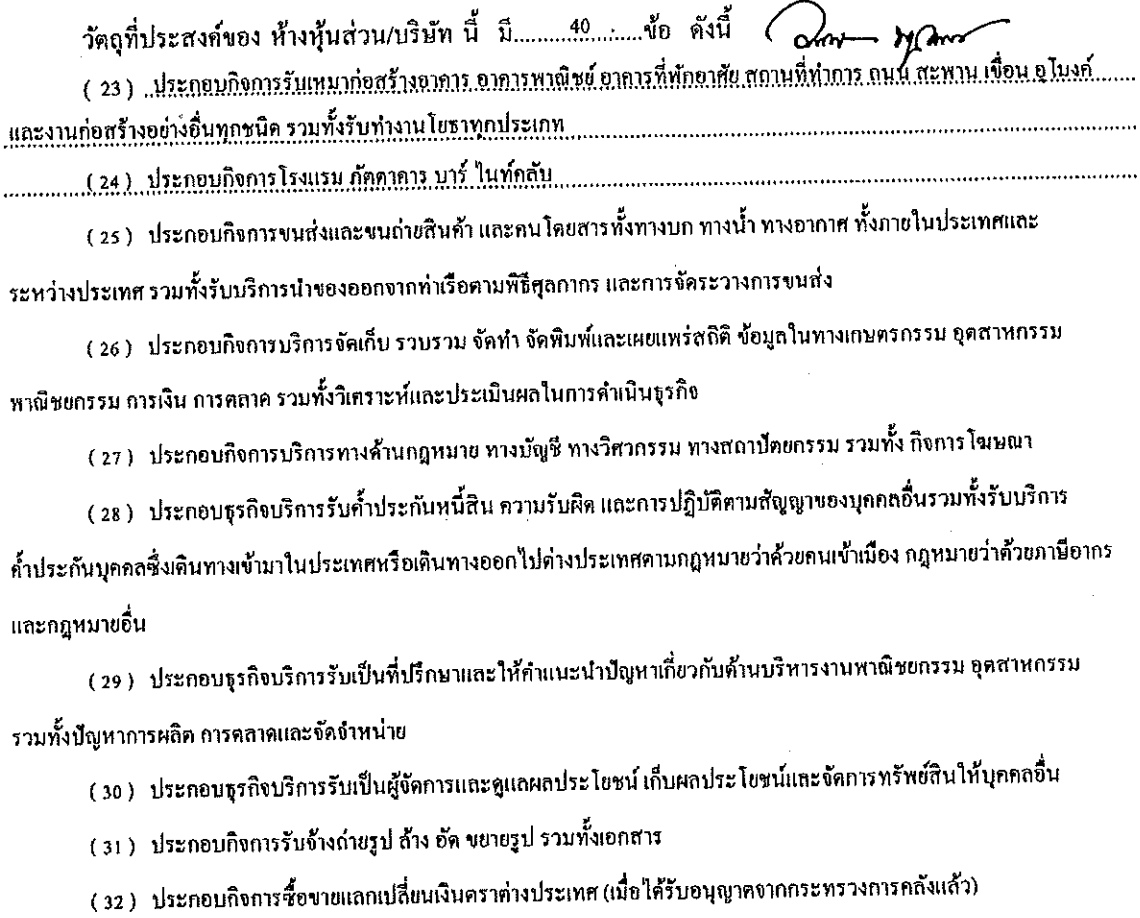 วัตถุที่ประสงค์ของ ห้างหุ้นส่วน/บริษัท นี้ มี..........40.........ข้อ ดังนี้
( 23 ) ประกอบกิจการรับเหมาก่อสร้างอาคาร อาคารพาณิชย์ อาคารที่พักอาศัย สถานที่ทำการ ถนน สะพาน เขื่อน อุโมงค์
และงานก่อสร้างอย่างอื่นทุกชนิด รวมทั้งรับทำงานโยธาทุกประเภท
( 24 ) ประกอบกิจการโรงแรม ภัตตาคาร บาร์ ไนท์คลับ
( 25 ) ประกอบกิจการขนส่งและขนถ่ายสินค้า และคนโดยสารทั้งทางบก ทางน้ำ ทางอากาศ ทั้งภายในประเทศและ
ระหว่างประเทศ รวมทั้งรับบริการนำของออกจากท่าเรือตามพิธีศุลกากร และการจัดระวางการขนส่ง
( 26 ) ประกอบกิจการบริการจัดเก็บ รวบรวม จัดทำ จัดพิมพ์และเผยแพร่สถิติ ข้อมูลในทางเกษตรกรรม อุตสาหกรรม
พาณิชยกรรม การเงิน การตลาด รวมทั้งวิเคราะห์และประเมินผลในการดำเนินธุรกิจ
( 27 ) ประกอบกิจการบริการทางด้านกฎหมาย ทางบัญชี ทางวิศวกรรม ทางสถาปัตยกรรม รวมทั้ง กิจการโฆษณา
( 28 ) ประกอบธุรกิจบริการรับค้ำประกันหนี้สิน ความรับผิด และการปฏิบัติตามสัญญาของบุคคลอื่นรวมทั้งรับบริการ
ค้ำประกันบุคคลซึ่งเดินทางเข้ามาในประเทศหรือเดินทางออกไปต่างประเทศตามกฎหมายว่าด้วยคนเข้าเมือง กฎหมายว่าด้วยภาษีอากร
และกฎหมายอื่น
( 29 ) ประกอบธุรกิจบริการรับเป็นที่ปรึกษาและให้คำแนะนำปัญหาเกี่ยวกับด้านบริหารงานพาณิชยกรรม อุตสาหกรรม
รวมทั้งปัญหาการผลิต การตลาดและจัดจำหน่าย
( 30 ) ประกอบธุรกิจบริการรับเป็นผู้จัดการและดูแลผลประโยชน์ เก็บผลประโยชน์และจัดการทรัพย์สินให้บุคคลอื่น
( 31 ) ประกอบกิจการรับจ้างถ่ายรูป ล้าง อัด ขยายรูป รวมทั้งเอกสาร
( 32 ) ประกอบกิจการซื้อขายแลกเปลี่ยนเงินตราต่างประเทศ (เมื่อได้รับอนุญาตจากกระทรวงการคลังแล้ว)